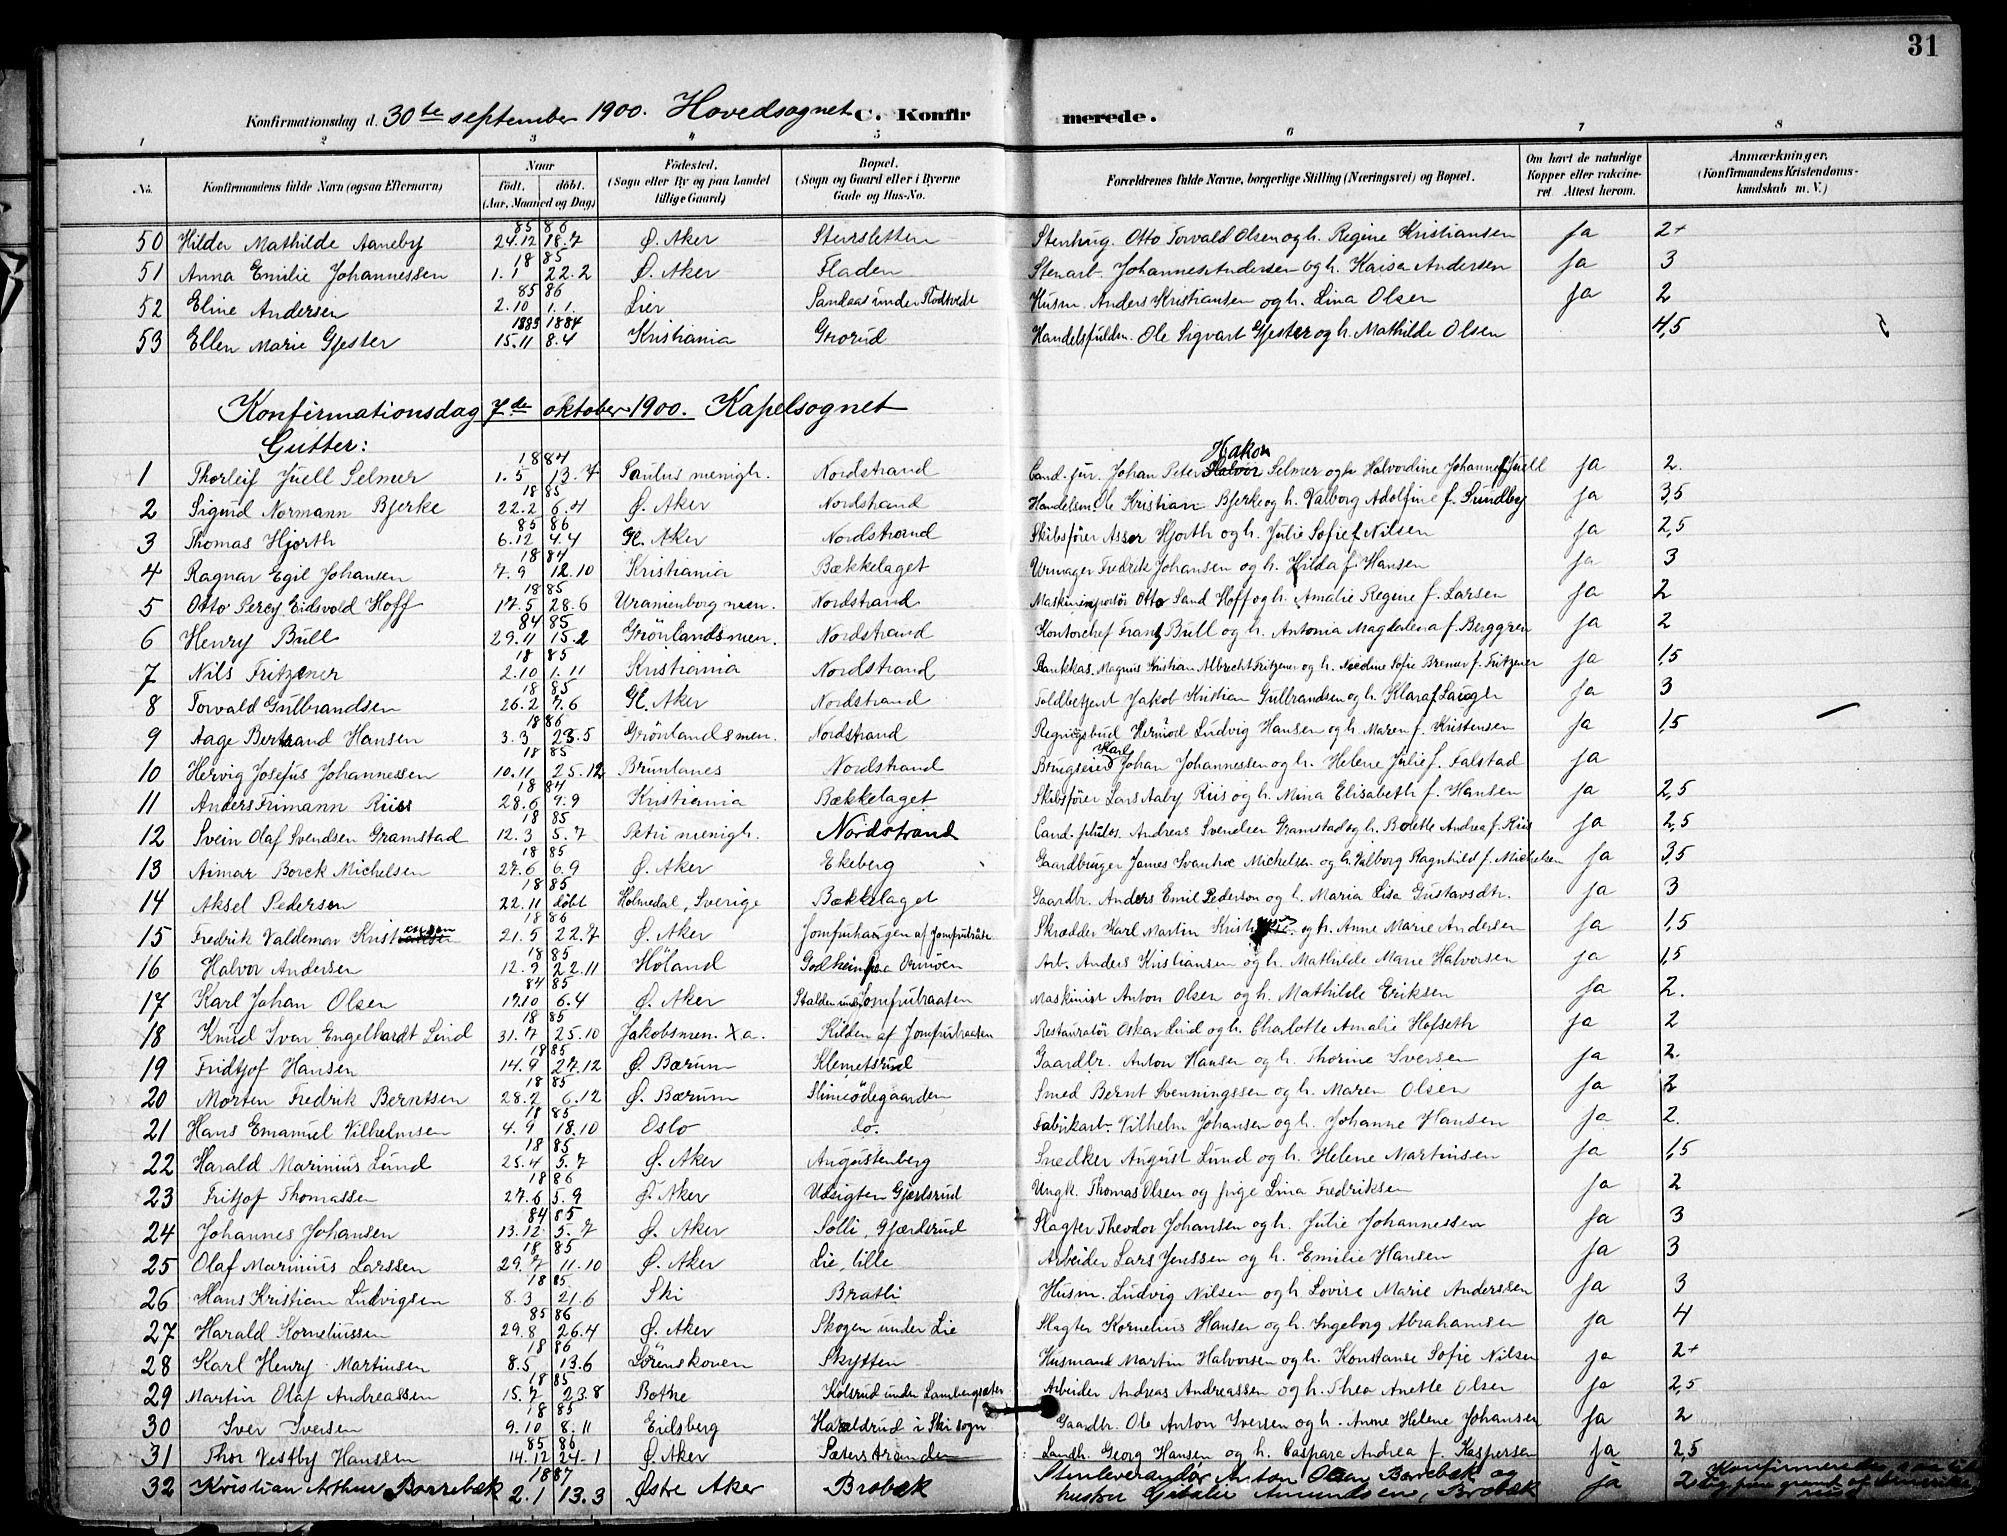 31
Konfirmationsdag d. 30te september 1900. Hovedsognet C. Konfirmerede.
1 2 3 4 5 6 7 8
No. Konfirmandens fulde Navn (ogsaa Efternavn) Naar født. døbt. (Aar, Maaned og Dag) Fødested. (Sogn eller By og paa Landet tillige Gaard) Bopæl. (Sogn og Gaard eller i Byerne Gade og Hus-No. Forældrenes fulde Navne, borgerlige Stilling (Næringsvei) og Bopæl. Om havt de naturlige Kopper eller vakcineret Attest herom. Anmærkninger. (Konfirmandens Kristendomskundskab m. V.)
50 Hilda Mathilde Aaneby 85 24.12 86 18.7 Ø. Aker Stensletten Stenhug. Otto Torvald Olsen og h. Regine Kristiansen ja 2+
51 Anna Emilie Johannessen 1885 1.1 22.2 Ø. Aker Fladen Stenarb. Johannes Andersen og h. Kaisa Andersen ja 3
52 Eline Andersen 85 2.10 86 1.1. Lier Sandaas under Rodtvedt Husm. Anders Kristiansen og h. Lina Olsen ja 2
53 Ellen Marie Gjester 1883 15.11 1884 8.4 Kristiania Grorud Handelsfuldm. Ole Sigvart Gjester og h. Mathilde Olsen 4,5
Konfirmationsdag 7de oktober 1900. Kapelsognet
Gutter:
1 Thorleif Juell Selmer 1884 1.5 13.7 Paulus menigh. Nordstrand Cand. jur. Johan Peter Hakon Selmer og h. Halvordine Johanne f. Juell ja 2.
2 Sigurd Normann Bjerke 1885 22.2 6.4 Ø. Aker Nordstrand Handelsm. Ole Kristian Bjerke og h. Valborg Adolfine f. Sundby ja 3,5
3 Thomas Hjorth 85 6.12 86 4.4 Gl. Aker Nordstrand Skibsfører Assor Hjorth og h. Julie Sofie f. Nilsen ja 2,5
4 Ragnar Egil Johansen 1884 7.9 12.10 Kristiania Bækkelaget Urmager Fredrik Johansen og h. Hilda f. Hansen ja 3
5 Otto Percy Eidsvold Hoff 1885 17.5 28.6 Uranienborg men. Nordstrand Otto Sand Hoff og h. Amalie Regine f. Larsen ja 2
6 Henry Bull 84 29.11 85 15.2 Grönlandsmen. Nordstrand Kontorchef Frantz Bull og h. Antonia Magdalena f. Berggren ja 2
7 Nils Fritzner 1885 2.10 1.11 Kristiania Nordstrand Bankkas. Magnus Kristian Albrecht Fritzner og h. Nicoline Sofie Bremer f. Fritzner ja 1,5
8 Torvald Gulbrandsen 1885 26.2 7.6 Gl. Aker Nordstrand Toldbetjent Jakob Kristian Gulbrandsen og h. Klara f. Laugh ja 3
9 Aage Bertrand Hansen 1886 3.3 23.5 Grönlandsmen. Nordstrand Regningsbud Hermod Ludvig Hansen og h. Maren f. Kristensen ja 1,5
10 Hervig Josefus Johannessen 1885 10.11 25.12 Brunlanes Nordstrand Brugseier Karl Johan Johannessen og h. Helene Julie f. Falstad ja
11 Anders Frimann Riis 1884 28.6 7.9 Kristiania Bækkelaget Skibsfører Lars Aaby Riis og h. Mina Elisabeth f. Hansen ja 2,5
12 Svein Olaf Svendsen Gramstad 1885 12.3 5.7 Petri menigh. Nordstrand Cand. philos. Andreas Svendsen Gramstad og h. Bolette Andrea f. Riis ja 2,5
13 Aimar Borck Michelsen 1885 27.6 6.9 Ø. Aker Ekeberg Gaardbruger James Ivanhoe Michelsen og h. Valborg Ragnhild f. Michelsen ja 3,5
14 Aksel Pedersen 1885 22.11 døbt Holmedal, Sverige Bækkelaget Gaardbr. Anders Emil Pederson og h. Maria Lisa Gustavsdtr. ja 3
15 Fredrik Valdemar Kristiansen 1886 21.5 22.7 Ø. Aker Jomfruhaugen af Jomfrubråte Skrædder Karl Martin og h. Anne Marie Andersen ja 1,5
16 Halvor Andersen 1885 12.9 22.11 Høland Godheim paa Ormöen Arb. Anders Kristiansen og h. Mathilde Marie Halvorsen ja 1,5
17 Karl Johan Olsen 84 17.10 85 6.4 Ø. Aker Stalden under Jomfrubraaten Maskinist Anton Olsen og h. Mathilde Eriksen ja 2.
18 Knud Ivar Engelhardt Lind 1885 31.7 25.10 Jakobsmen. Xa. Kilden af Jomfrubraaten Restauratör Oskar Lind og h. Charlotte Amalie Hofseth ja 2
19 Fridtjof Hansen 1885 14.9 27.12 Ø. Bærum Klemetsrud Gaardbr. Anton Hansen og h. Thorine Iversen ja 2.
20 Morten Fredrik Berntsen 1885 28.2 6.12 Ø. Bærum Slimeödegaarden Smed Bernt Svenningssen og h. Maren Olsen ja 2
21 Hans Emanuel Vilhelmsen 1885 4.9 18.10 Oslo do. Fabrikarb. Vilhelm Johansen og h. Johanne Hansen ja 2.
22 Harald Marinius Lund 1885 25.4 5.7 Ø. Aker Augustenberg Snedker August Lund og h. Helene Martinsen ja 1,5
23 Fritjof Thomassen 1886 27.6 5.9 Ø. Aker Udsigten Gjærdsrud Ungk. Thomas Olsen og pige Lina Fredriksen ja 2
24 Johannes Johansen 84 13.12 85 5.7 Ø. Aker Solli, Gjærdsrud Slagter Theodor Johansen og h. Julie Johannessen ja 3
25 Olaf Marinius Larssen 1885 29.7 11.10 Ø. Aker Lie, lille Arbeider Lars Jenssen og h. Emilie Hansen ja 3
26 Hans Kristian Ludvigsen 1885 8.3 21.6 Ski Bratli Husm. Ludvig Nilsen og h. Lovise Marie Anderssen ja 3
27 Harald Korneliussen 85 29.8 86 26.4 Ø. Aker Skogen under Lie Slagter Kornelius Hansen og h. Ingeborg Abrahamsen ja 4
28 Karl Henry Martinsen 1886 8.5 13.6 Lörenskoven Skytten Husmand Martin Halvorsen og h. Konstanse Sofie Nilsen ja 2+
29 Martin Olaf Andreassen 1885 15.7 23.8 Botne Kolsrud under Lambergsæter Arbeider Andreas Andreassen og h. Thea Anette Olsen ja 2,5
30 Iver Iversen 1885 9.10 8.11 Eidsberg Haraldrud i Ski sogn Gaardbr. Ole Anton Iversen og h. Anne Helene Johansen ja 2
31 Thor Vestby Hanssen 85 14.12 86 24.1 Ø. Aker Sæterstranden Landh. Georg Hansen og h. Caspara Andrea f. Kaspersen ja 2,5
32 Kristian Arthur Borrebæk 1887 2.1 13.3 Østre Aker Brobæk Stenleverandør Anton Olsen Borrebæk og hustru Amundsen, Brobæk ja 2